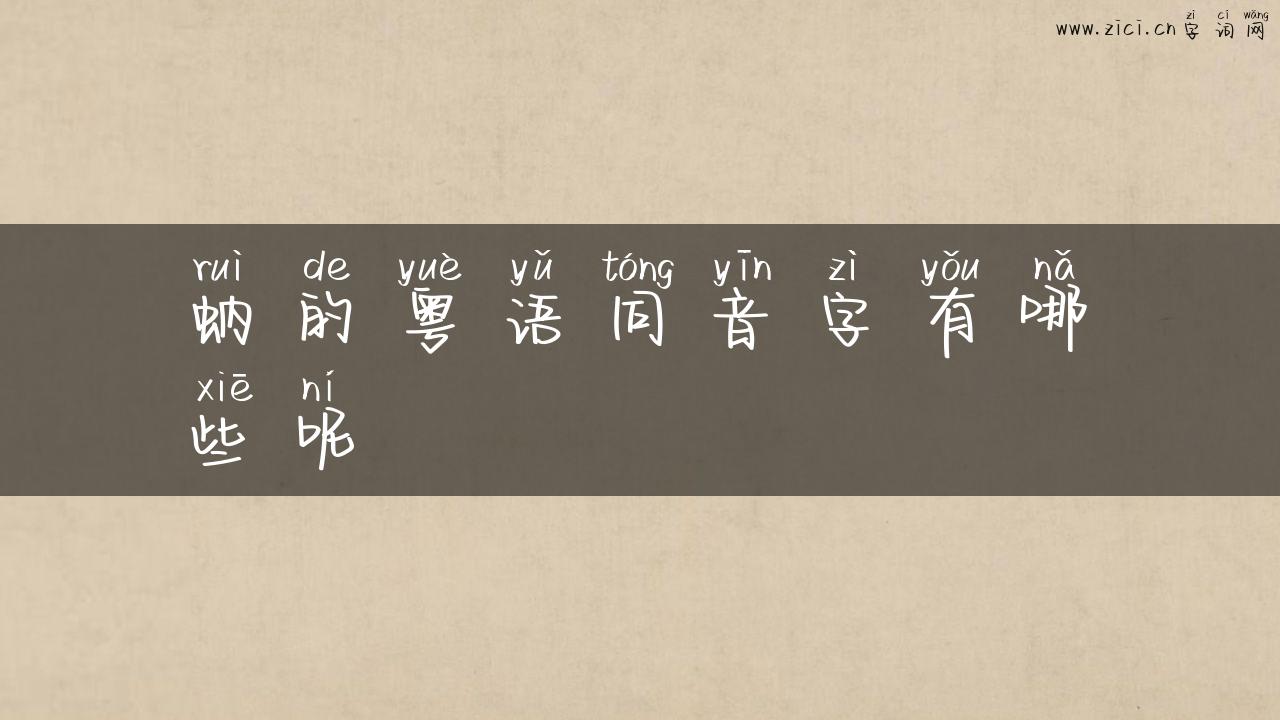 zì cí wǎng
www.zici.cn 字 词 网
ruì de yuè yǔ tóng yīn zì yǒu nǎ
蚋 的 粤 语 同 音 字 有 哪
xiē ní
些 呢